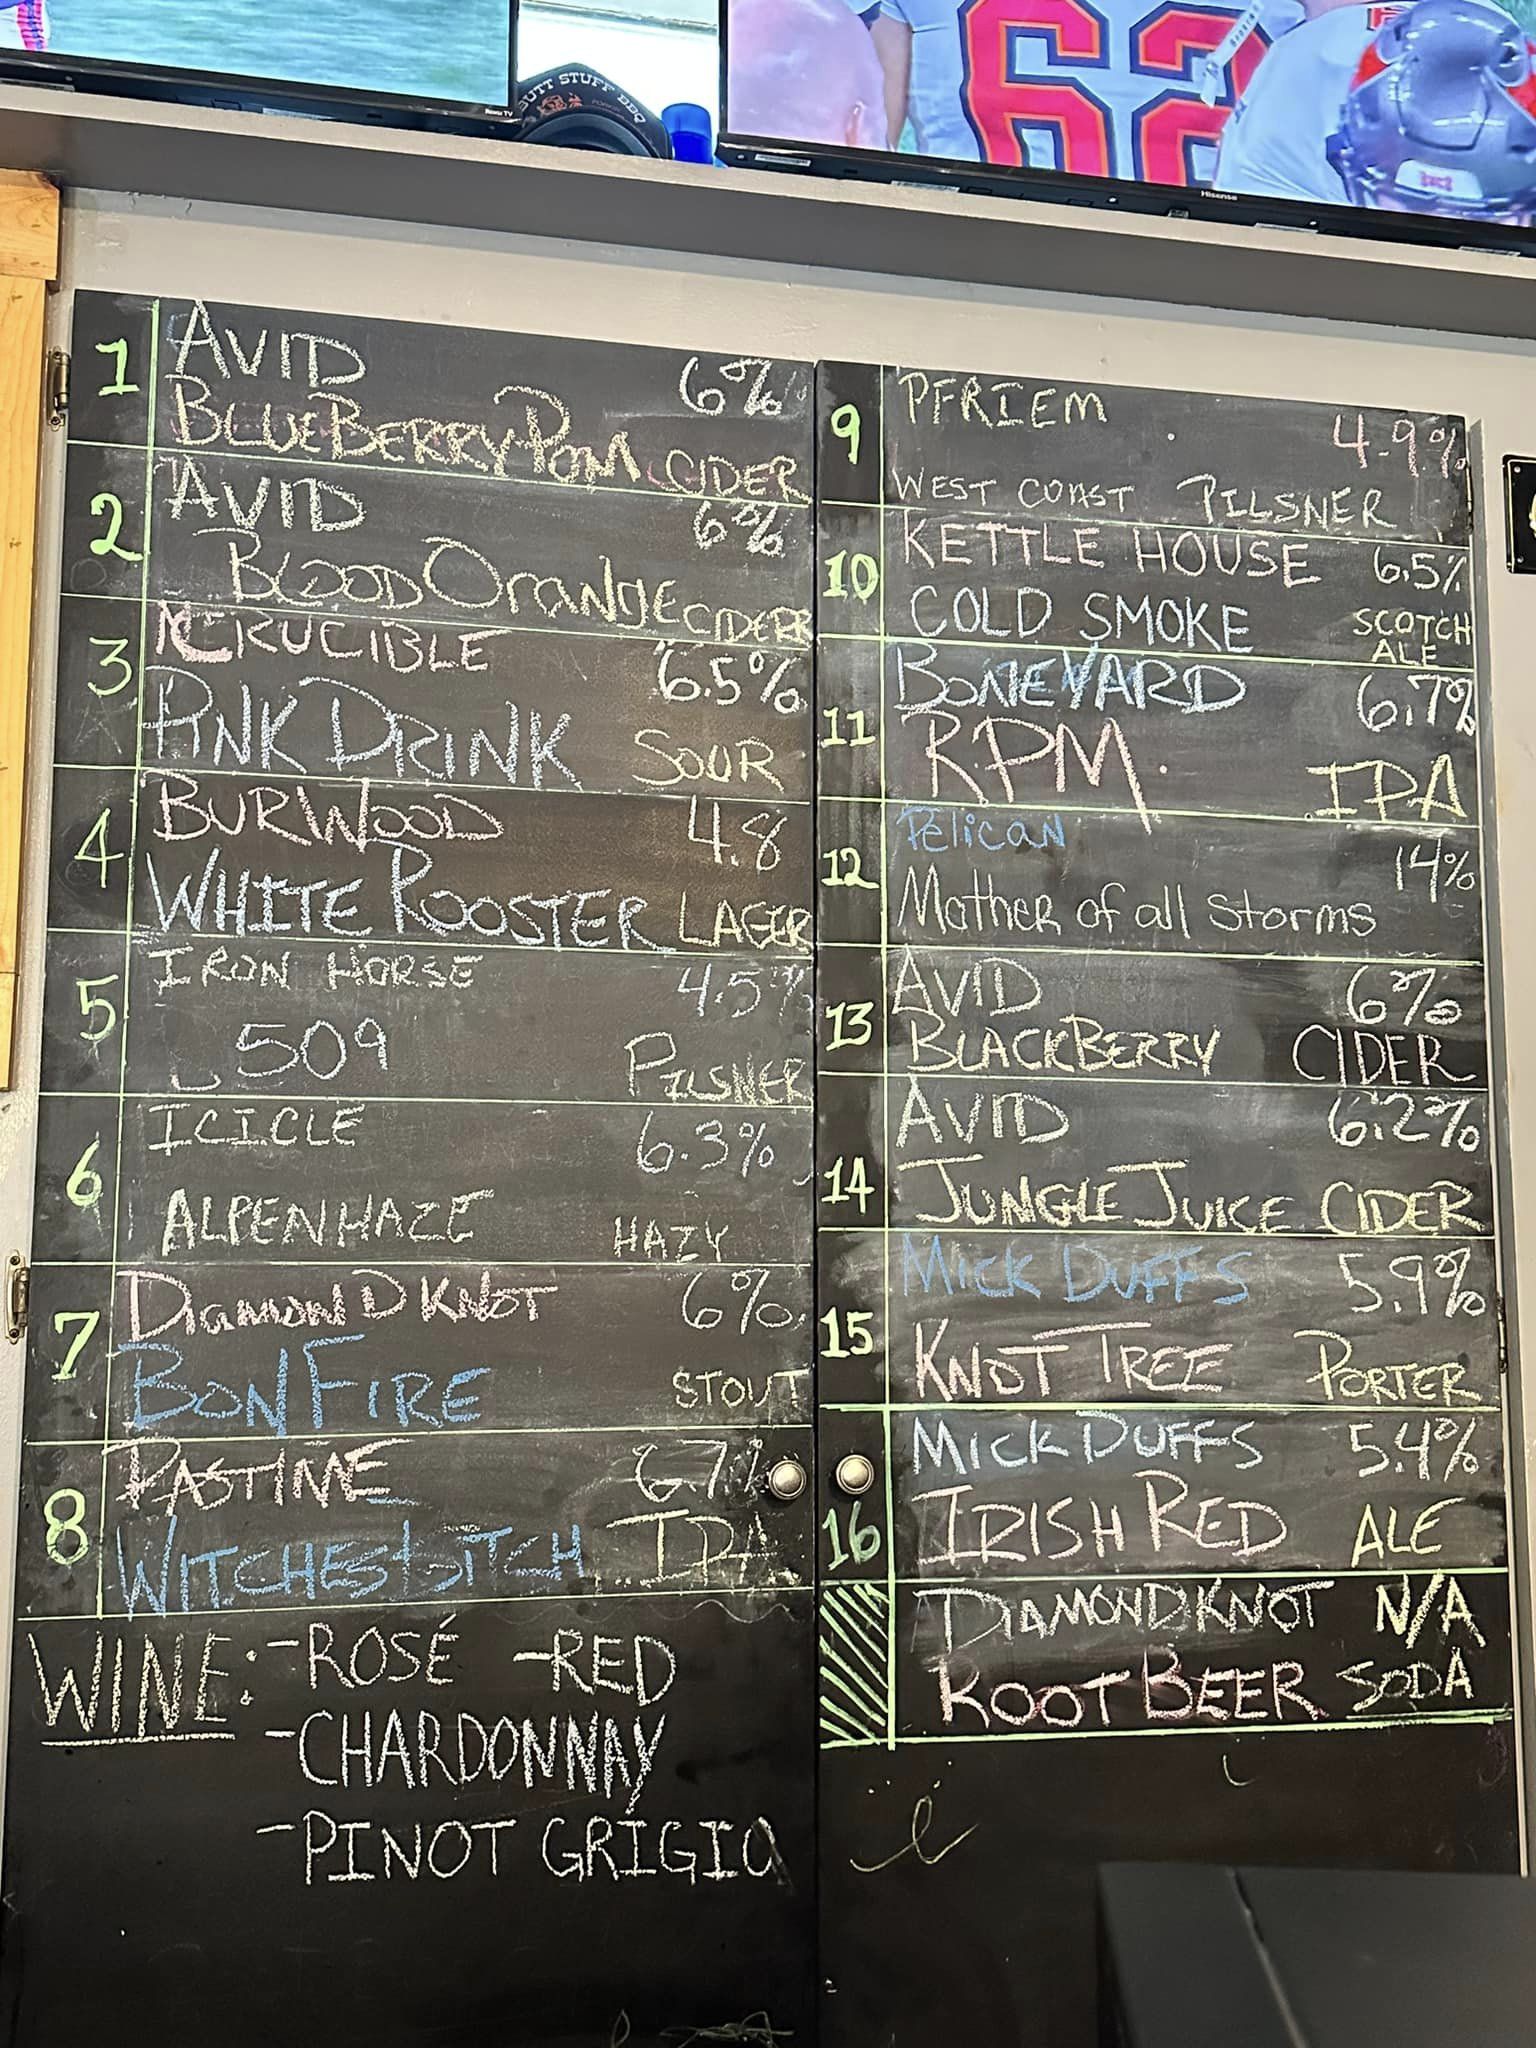 BUTT STUFF BBQ
62
Roku TV
Hisense
1 AVID 6%
BLUEBERRY POM CIDER
2 AVID 6%
BLOOD ORANGE CIDER
3 CRUCIBLE 6.5%
PINK DRINK SOUR
4 BURWOOD 4.8
WHITE ROOSTER LAGER
5 IRON HORSE 4.5%
509 PILSNER
6 ICICLE 6.3%
ALPENHAZE HAZY
7 DIAMOND KNOT 6%
BONFIRE STOUT
8 PASTIME 6.7%
WITCHES BITCH IPA
WINE: -ROSÉ -RED
-CHARDONNAY
-PINOT GRIGIO
9 PFRIEM 4.9%
WEST COAST PILSNER
10 KETTLE HOUSE 6.5%
COLD SMOKE SCOTCH
ALE
11 BONEYARD 6.7%
RPM IPA
12 Pelican 14%
Mother of all Storms
13 AVID 6%
BLACKBERRY CIDER
14 AVID 6.2%
JUNGLE JUICE CIDER
15 MICK DUFFS 5.9%
KNOT TREE PORTER
16 MICK DUFFS 5.4%
IRISH RED ALE
DIAMOND KNOT N/A
ROOT BEER SODA